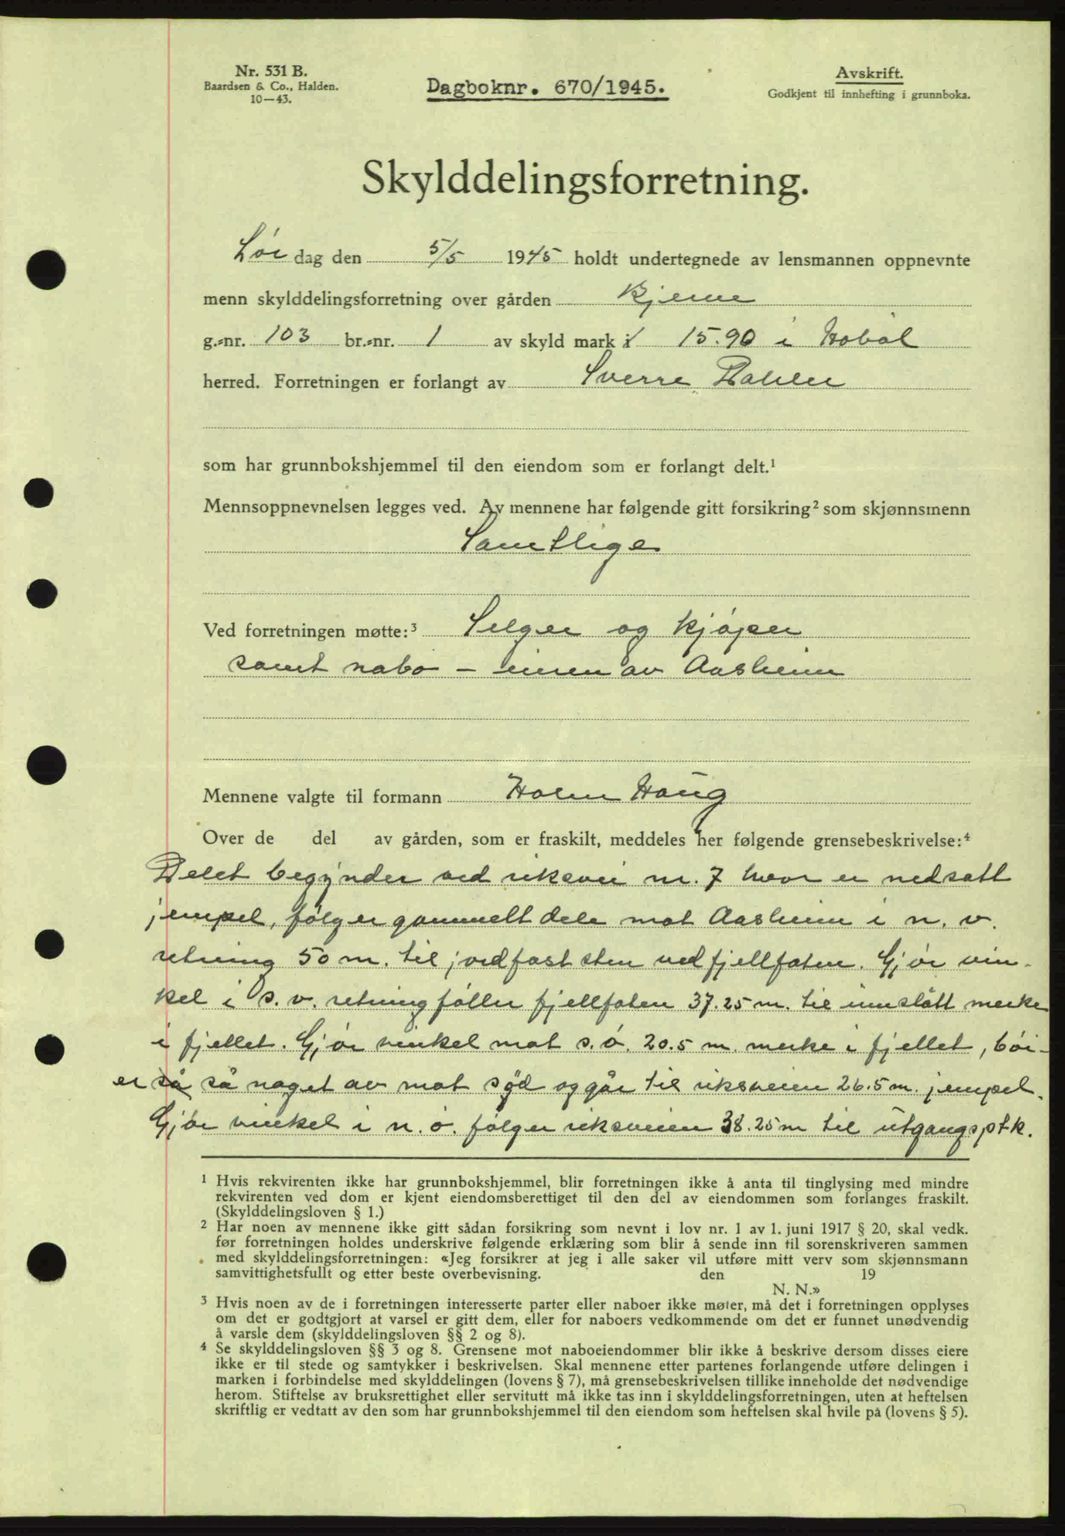 Nr. 531 B.
Baardsen & Co., Halden.
10—43.
Dagboknr. 670/1945.
Avskrift.
Godkjent til innhefting i grunnboka.
Skylddelingsforretning.
Lør dag den 5/5 1945 holdt undertegnede av lensmannen oppnevnte
menn skylddelingsforretning over gården Kjerne
g.-nr. 103 br.-nr. 1 av skyld mark 15.90 i Hobøl
herred. Forretningen er forlangt av Sverre Dahler
som har grunnbokshjemmel til den eiendom som er forlangt delt.¹
Mennsoppnevnelsen legges ved. Av mennene har følgende gitt forsikring² som skjønnsmenn
Samtlige
Ved forretningen møtte:³ Selger og kjøper
samt nabo – eieren av Aasheim
Mennene valgte til formann Holm Haug
Over de del av gården, som er fraskilt, meddeles her følgende grensebeskrivelse:⁴
Delet begynder ved riksvei nr. 7 hvor er nedsatt
jernpel, følger gammelt dele mot Aasheim i n. v.
retning 50 m. til jordfast sten ved fjellfoten. Gjør vin-
kel i s. v. retning føller fjellfoten 37.25 m. til innslått merke
i fjellet. Gjør vinkel mot s. ø. 20.5 m. merke i fjellet, bøi-
er så så noget av mot syd og går til riksveien 26.5 m. jernpel.
Gjør vinkel i n. ø. følger riksveien 38.25 m til utgangsptk.
¹ Hvis rekvirenten ikke har grunnbokshjemmel, blir forretningen ikke å anta til tinglysing med mindre
rekvirenten ved dom er kjent eiendomsberettiget til den del av eiendommen som forlanges fraskilt.
(Skylddelingsloven § 1.)
² Har noen av mennene ikke gitt sådan forsikring som nevnt i lov nr. 1 av 1. juni 1917 § 20, skal vedk.
før forretningen holdes underskrive følgende erklæring som blir å sende inn til sorenskriveren sammen
med skylddelingsforretningen: «Jeg forsikrer at jeg i alle saker vil utføre mitt verv som skjønnsmann
samvittighetsfullt og etter beste overbevisning. den 19
N. N.»
³ Hvis noen av de i forretningen interesserte parter eller naboer ikke møter, må det i forretningen opplyses
om det er godtgjort at varsel er gitt dem, eller for naboers vedkommende om det er funnet unødvendig
å varsle dem (skylddelingsloven §§ 2 og 8).
⁴ Se skylddelingsloven §§ 3 og 8. Grensene mot naboeiendommer blir ikke å beskrive dersom disses eiere
ikke er til stede og samtykker i beskrivelsen. Skal mennene etter partenes forlangende utføre delingen i
marken i forbindelse med skylddelingen (lovens § 7), må grensebeskrivelsen tillike inneholde det nødvendige
herom. Stiftelse av bruksrettighet eller servitutt må ikke tas inn i skylddelingsforretningen, uten at heftelsen
skriftlig er vedtatt av den som har grunnbokshjemmel til den eiendom som heftelsen skal hvile på (lovens § 5).